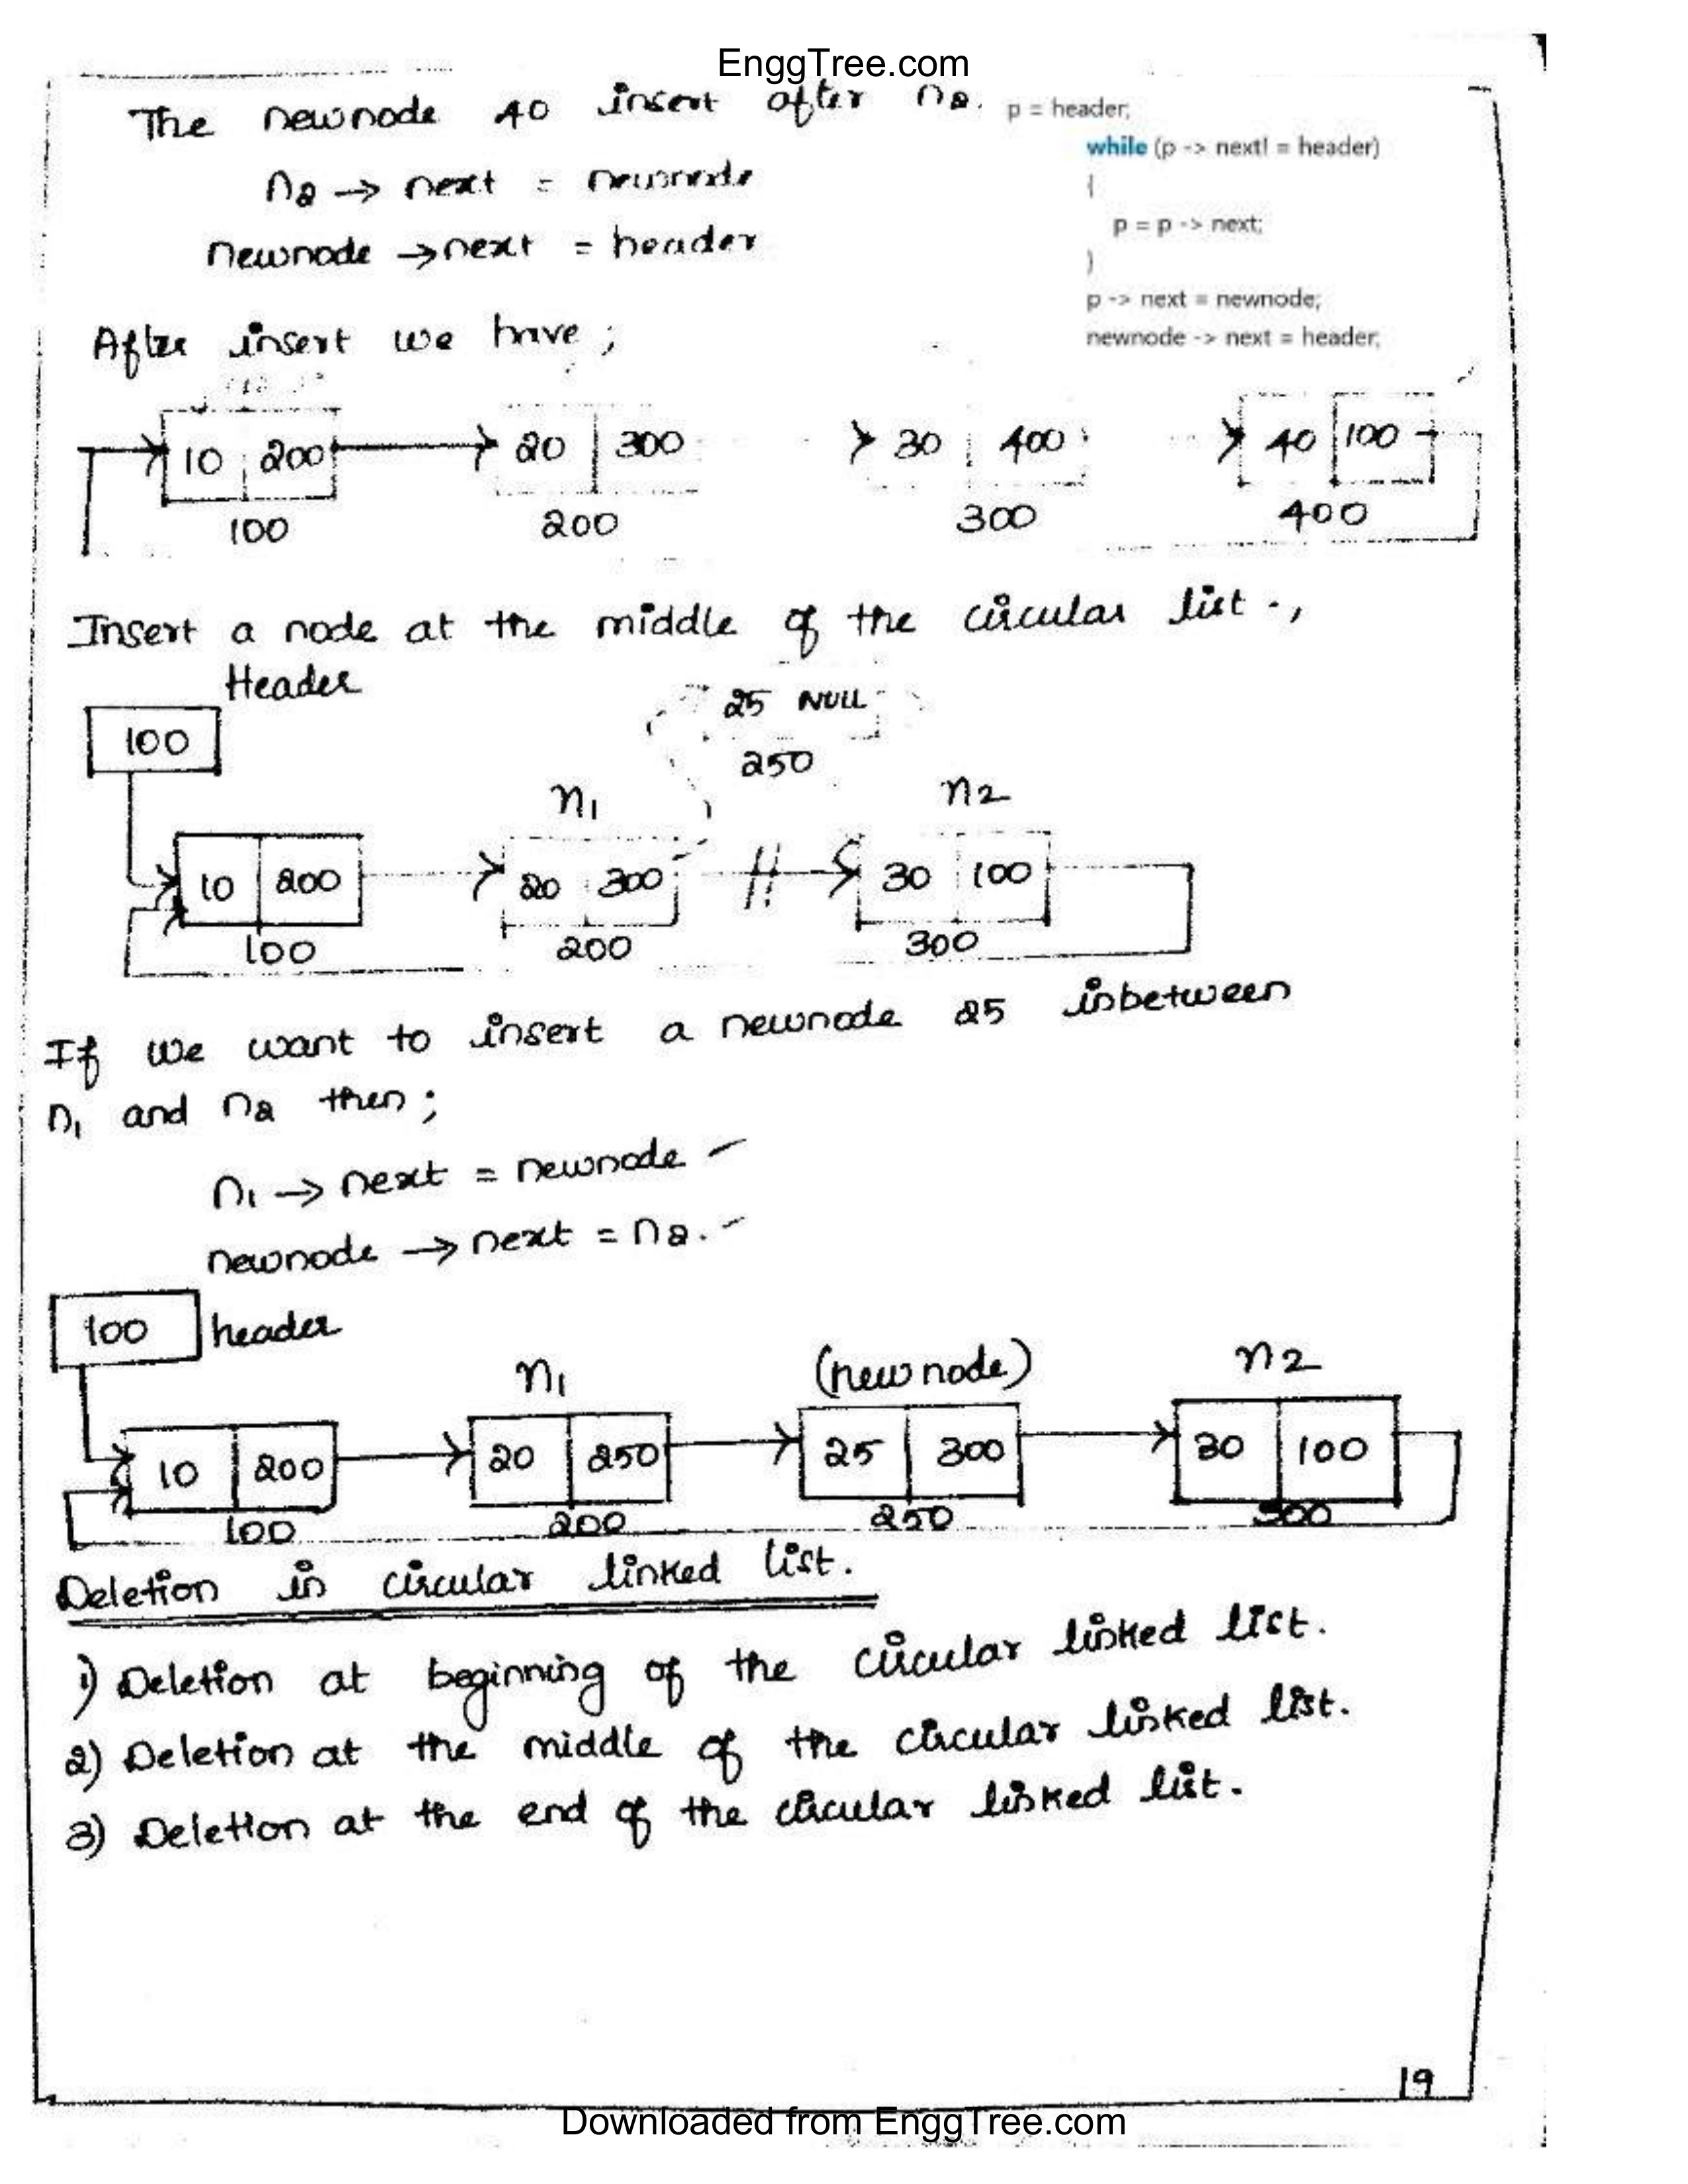 EnggTree.com
The newnode 40 insert after n2.
n2 → next = newnode
newnode → next = header
p = header;
while (p -> next! = header)
{
p = p -> next;
}
p -> next = newnode;
newnode -> next = header;
After insert we have ;
10 200 20 300 30 400 40 100
100 200 300 400
Insert a node at the middle of the circular list .,
Header
100
25 NULL
250
n1 n2
10 200 20 300 30 100
100 200 300
If we want to insert a newnode 25 inbetween
n1 and n2 then ;
n1 → next = newnode
newnode → next = n2.
100 header
n1 (new node) n2
10 200 20 250 25 300 30 100
100 200 250 300
Deletion in circular linked list.
1) Deletion at beginning of the circular linked list.
2) Deletion at the middle of the circular linked list.
3) Deletion at the end of the circular linked list.
19
Downloaded from EnggTree.com